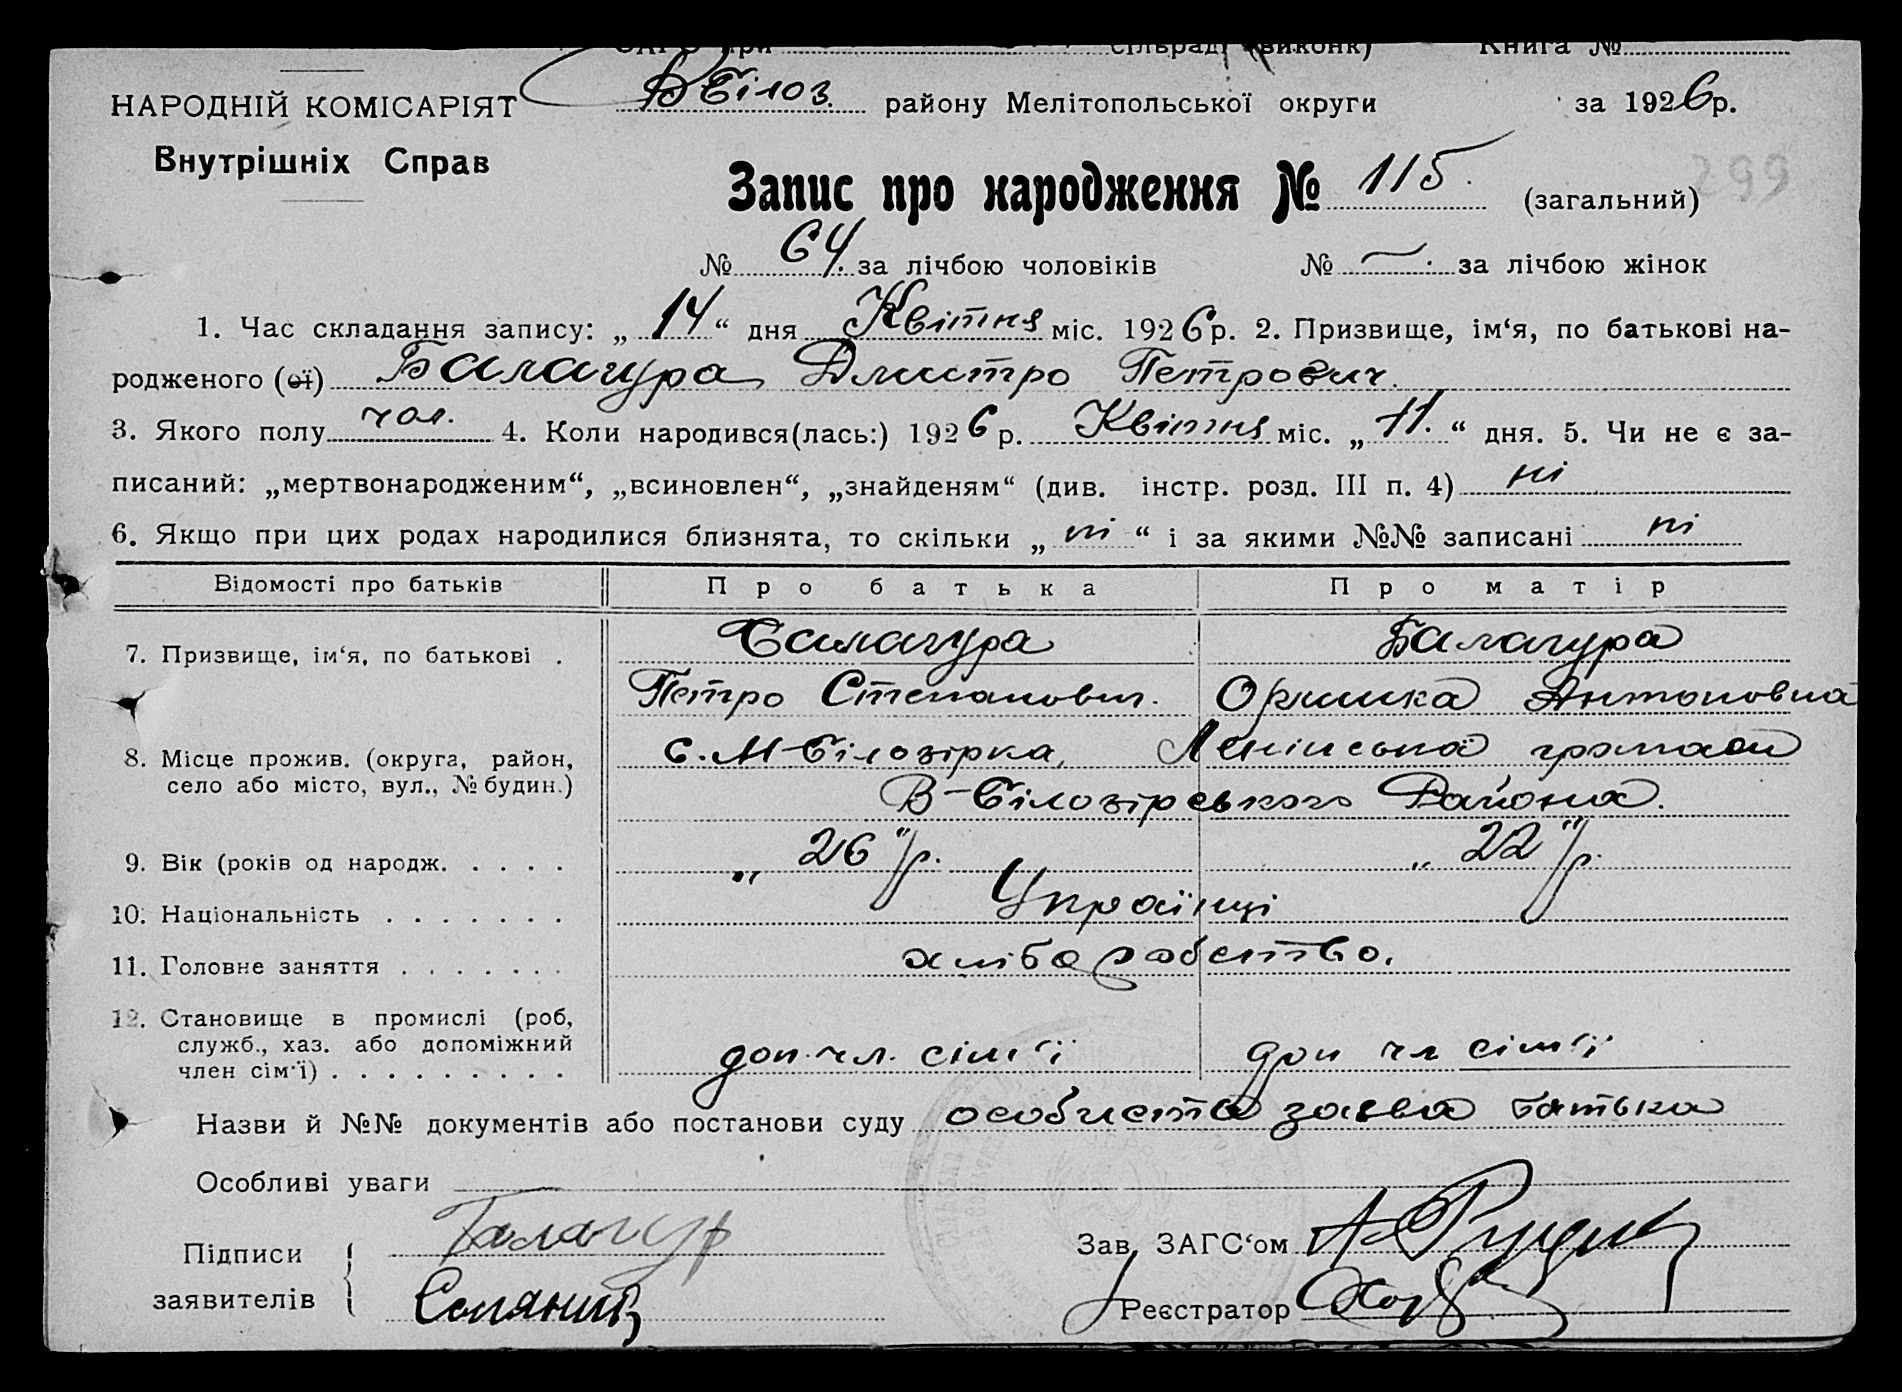 ЗАГС при сільраді (виконк) Книга №
НАРОДНІЙ КОМІСАРІЯТ
Внутрішніх Справ
В Білоз. району Мелітопольської округи за 1926р.
Запис про народження № 115. (загальний) 299
№ 64. за лічбою чоловіків № —. за лічбою жінок
1. Час складання запису: „ 14 “ дня Квітня міс. 1926р. 2. Призвище, ім‘я, по батькові на-
родженого (ої) Балагура Дмитро Петрович.
3. Якого полу чол. 4. Коли народився(лась:) 1926 р. Квітня міс. „ 11. “ дня. 5. Чи не є за-
писаний: „мертвонародженим“, „всиновлен“, „знайденям“ (див. інстр. розд. III п. 4) ні
6. Якщо при цих родах народилися близнята, то скільки „ ні “ і за якими №№ записані ні
Відомості про батьків Про батька Про матір
7. Призвище, ім‘я, по батькові . Балагура Балагура
Петро Степанович. Оришка Антоновна
8. Місце прожив. (округа, район, с. М-Білозірка, Ленінська громади
село або місто, вул., № будин.) В-Білозірського Района.
9. Вік (років од народж. . . . . „ 26 “/р. „ 22 “/р.
10. Національність . . . . . . . Українці
11. Головне заняття . . . . . . . хліборобство.
12. Становище в промислі (роб,
служб., хаз. або допоміжний
член сім‘ї) . . . . . . . . . доп. чл. сім‘ї доп чл сім‘ї
Назви й №№ документів або постанови суду особиста заява батька
Особливі уваги
Підписи Балагур Зав. ЗАГС‘ом
заявителів Реєстратор